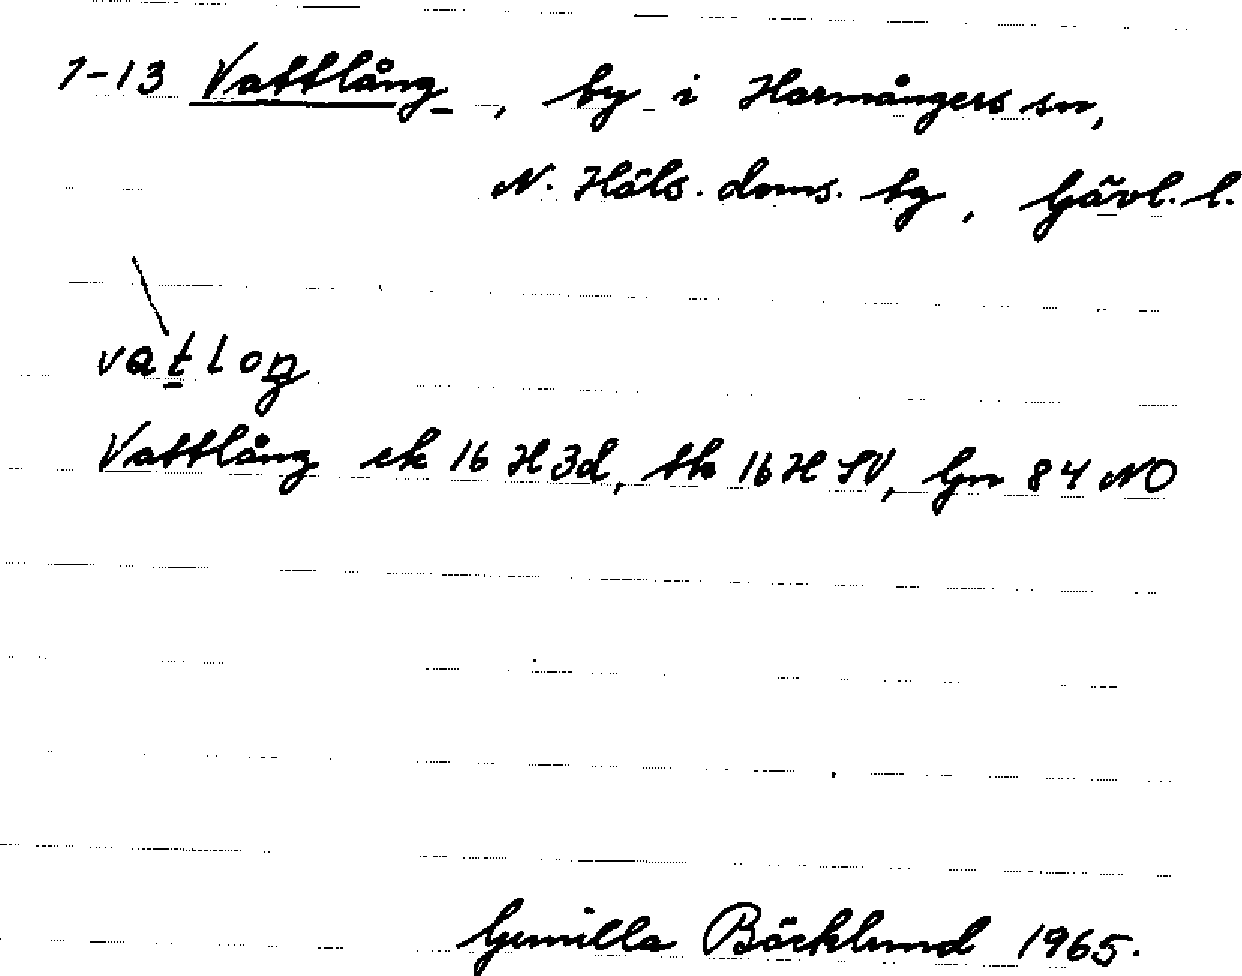 1-13 Vattlång, by i Harmångers sn,
N. Häls. doms. hg, Gävl. l.
vatloŋ
Vattlång ek 16 H 3d, tk 16 H SV, Gn 84 NO
Gunilla Bäcklund 1965.